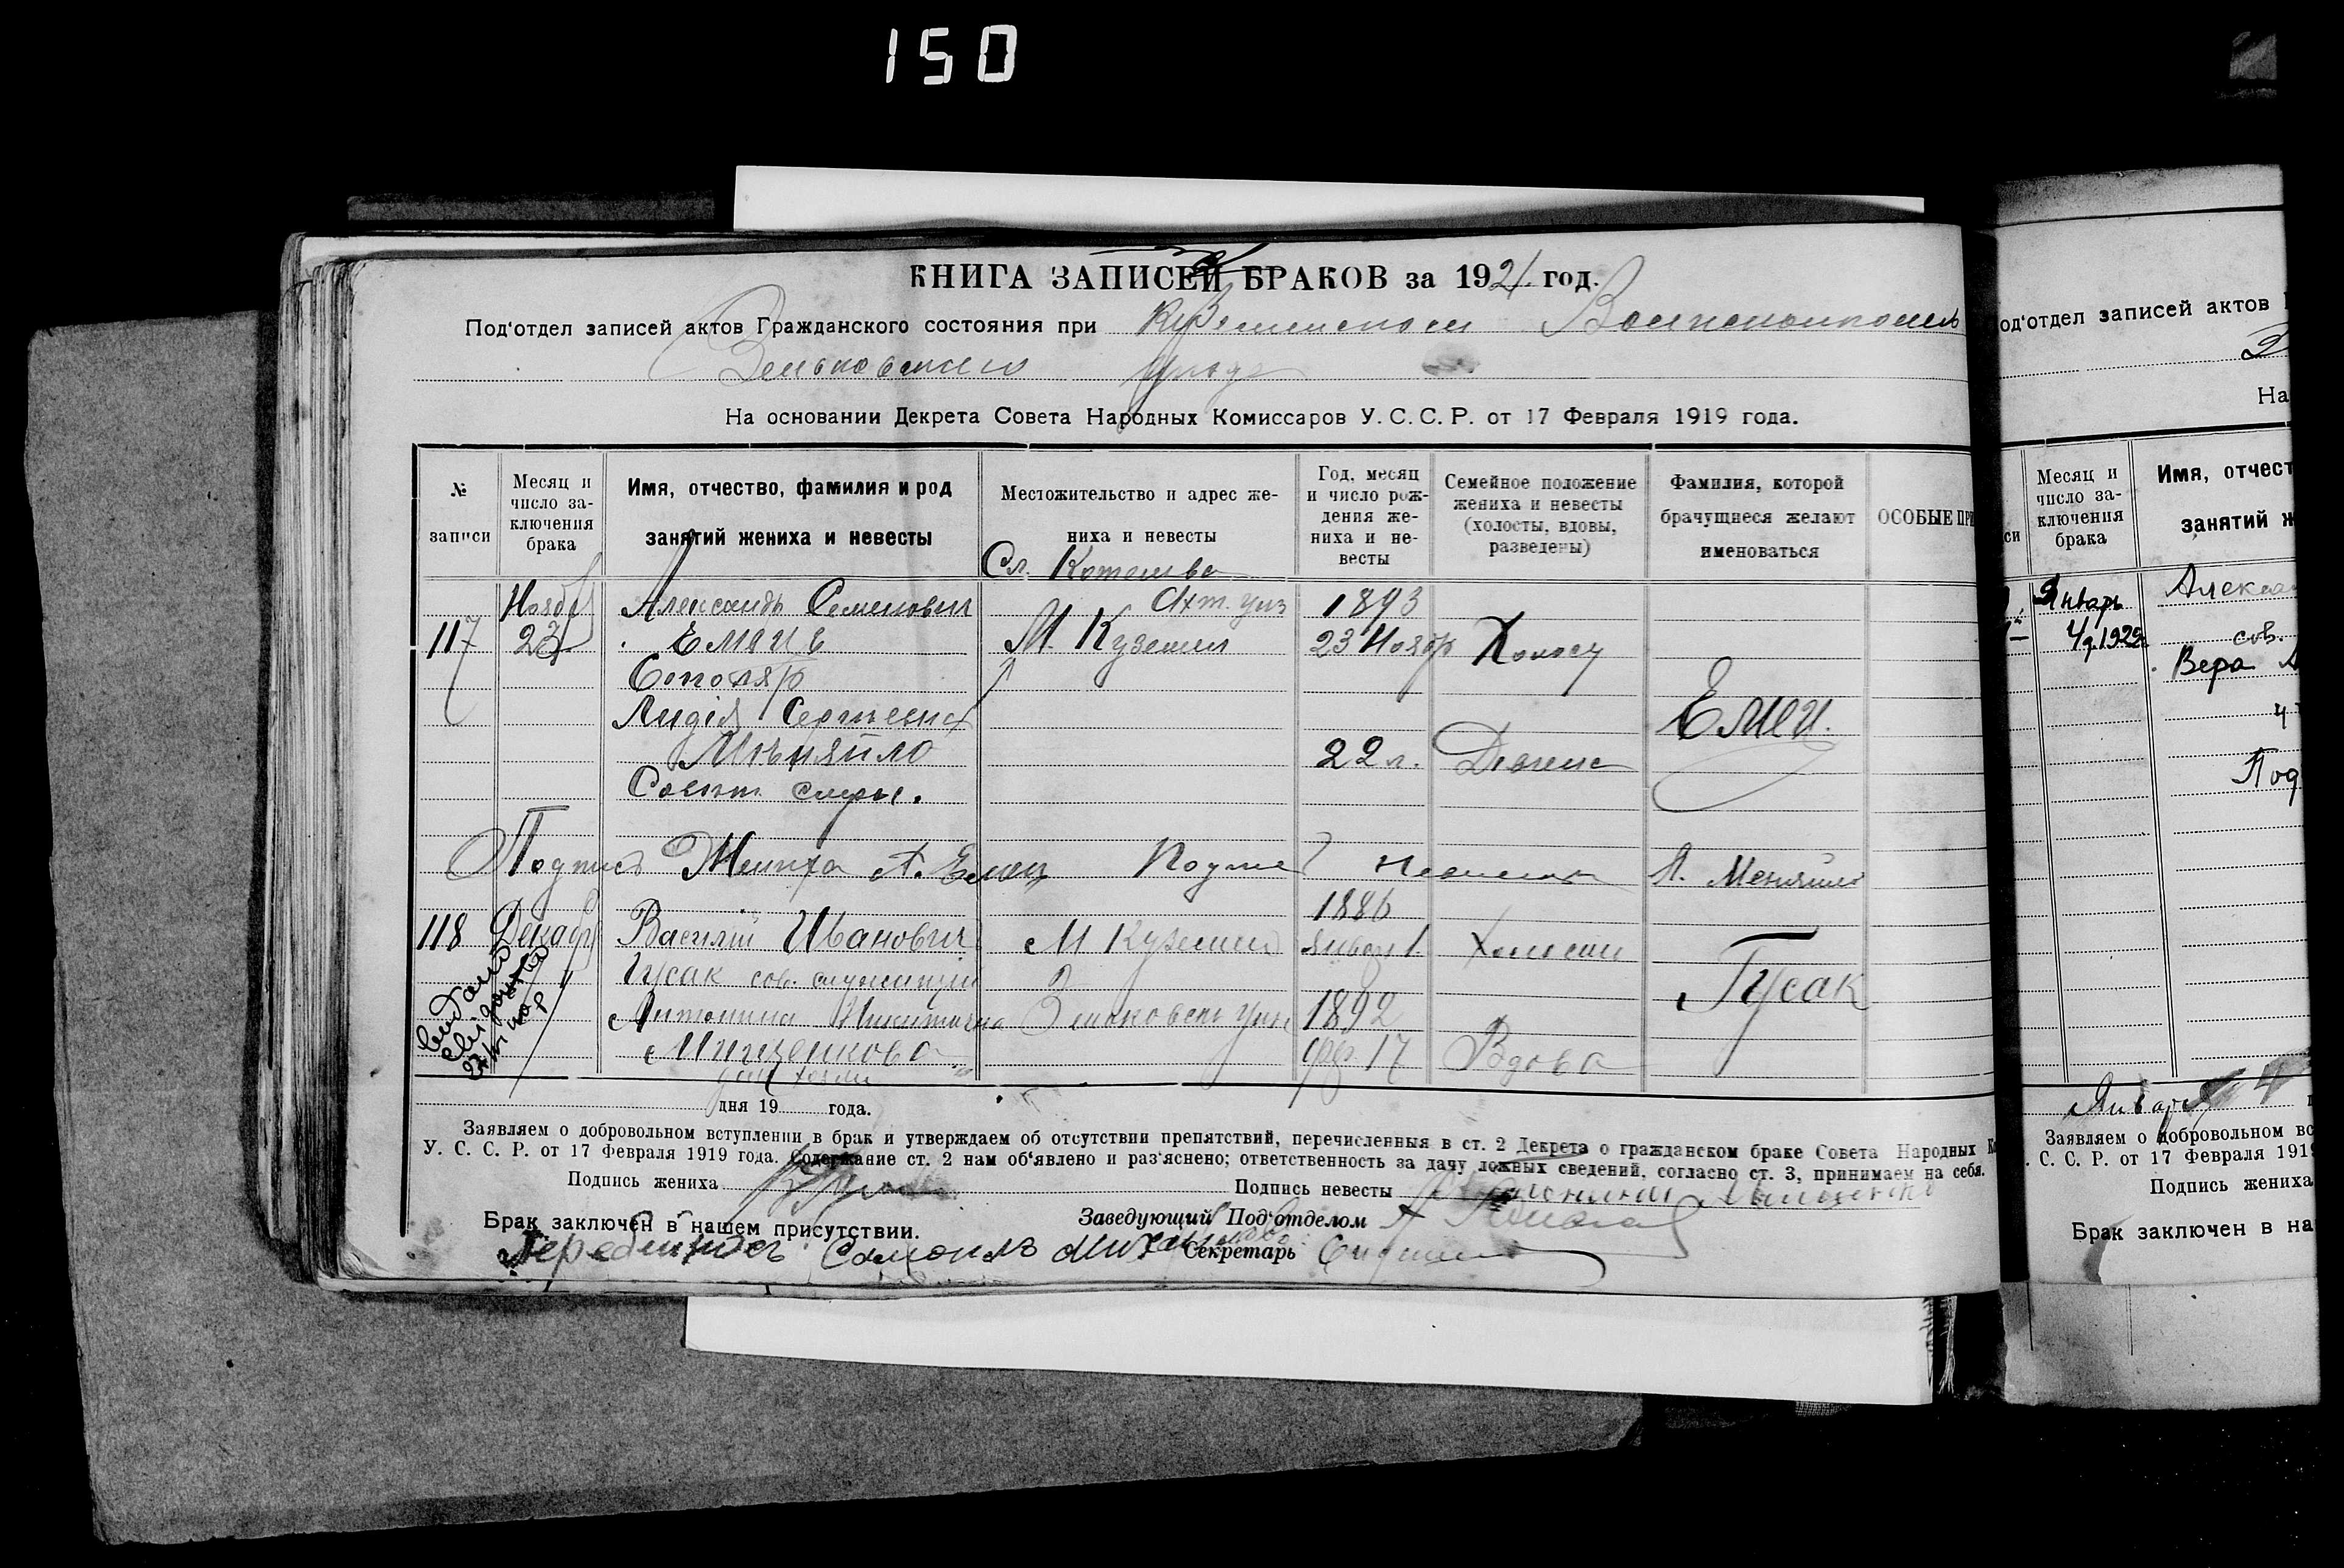 150
КНИГА ЗАПИСЕЙ БРАКОВ за 1921 год.
Под'отдел записей актов Гражданского состояния при Куземинском Волисполкоме
Зеньковского уезда
На основании Декрета Совета Народных Комиссаров У. С. С. Р. от 17 Февраля 1919 года.
№ записи
Месяц и число заключения брака
Имя, отчество, фамилия и род занятий жениха и невесты
Местожительство и адрес жениха и невесты
Год, месяц и число рождения жениха и невесты
Семейное положение жениха и невесты (холосты, вдовы, разведены)
Фамилия, которой брачущиеся желают именоваться
ОСОБЫЕ ПРИ
Сл. Котельва
Ноябр Александр Семенович Ахт. уез 1893
117 23 Емец М. Куземин 23 Ноябр Холост
Столяр
Лидія Сергеевна Емец.
Мѣняйло 22 л. Девица
Совет. служ.
Подпись Жениха А. Емец Подпись Невесты Л. Меняйло
1886
118 Декабр Василій Иванович М Куземин январ 1. холост
Гусак сов. служащий Гусак
1 Антонина Никитична Зеньковск уез 1892
Мищенкова фев. 17 Вдова
видано
дом хозяй
дня 19 года.
Заявляем о добровольном вступлении в брак и утверждаем об отсутствии препятствий, перечисленныя в ст. 2 Декрета о гражданском браке Совета Народных К
У. С. С. Р. от 17 Февраля 1919 года. Содержание ст. 2 нам об'явлено и раз'яснено; ответственность за дачу ложных сведений, согласно ст. 3, принимаем на себя.
Подпись жениха Подпись невесты
Брак заключен в нашем присутствии. Заведующий Под'отделом
Самоил Михайлово Секретарь
од'отдел записей актов
На
си
Месяц и число заключения брака
Имя, отчест
занятий ж
Январь
4/1 1922
Алекса
сов.
Вера
Под
Январ
Заявляем о добровольном вс
. С. С. Р. от 17 Февраля 1919
Подпись жениха
Брак заключен в на